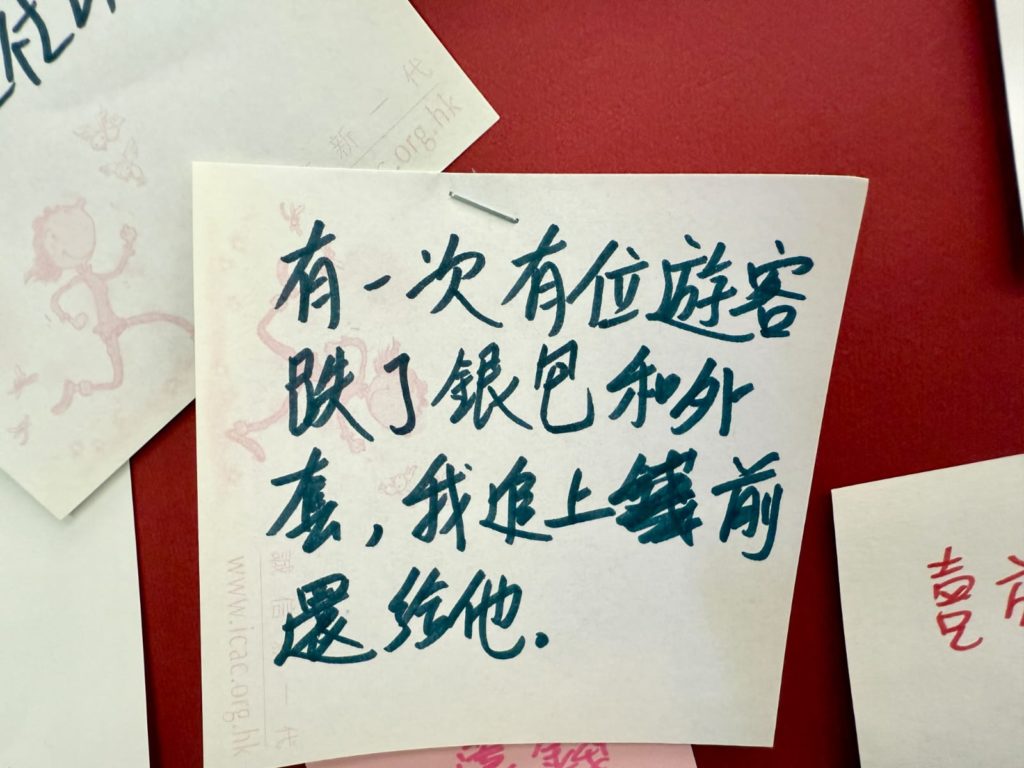 有一次有位遊客
跌了銀包和外
套,我追上前
還給他.
www.icac.org.hk
新一代
.org.hk
喜